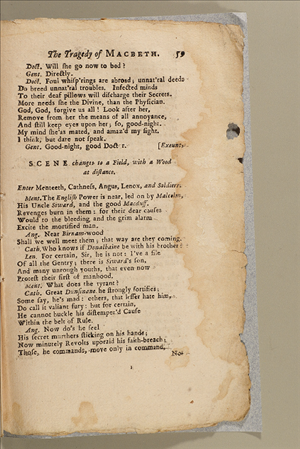 The Tragedy of MACBETH. 59
Doct. Will she go now to bed?
Gent. Directly.
Doct. Foul whisp'rings are abroad; unnat'ral deeds
Do breed unnat'ral troubles. Infected minds
To their deaf pillows will discharge their Secrets.
More needs she the Divine, than the Physician.
God, God, forgive us all! Look after her,
Remove from her the means of all annoyance,
And still keep eyes upon her; so, good-night.
My mind she'as mated, and amaz'd my sight.
I think, but dare not speak.
Gent. Good-night, good Doctor. [Exeunt.
SCENE changes to a Field, with a Wood
at distance.
Enter Menteeth, Cathness, Angus, Lenox, and Soldiers.
Ment. The English Power is near, led on by Malcolm,
His Uncle Siward, and the good Macduff.
Revenges burn in them: for their dear causes
Would to the bleeding and the grim alarm
Excite the mortified man.
Ang. Near Birnam-wood
Shall we well meet them; that way are they coming.
Cath. Who knows if Donalbaine be with his brother?
Len. For certain, Sir, he is not: I've a file
Of all the Gentry; there is Siward's son,
And many unrough youths, that even now
Protest their first of manhood.
Ment. What does the tyrant?
Cath. Great Dunsinane he strongly fortifies;
Some say, he's mad: others, that lesser hate him,
Do call it valiant fury: but for certain,
He cannot buckle his distemper'd Cause
Within the belt of Rule.
Ang. Now do's he feel
His secret murthers sticking on his hands;
Now minutely Revolts upbraid his faith-breach;
Those, he commands, move only in command,
No-